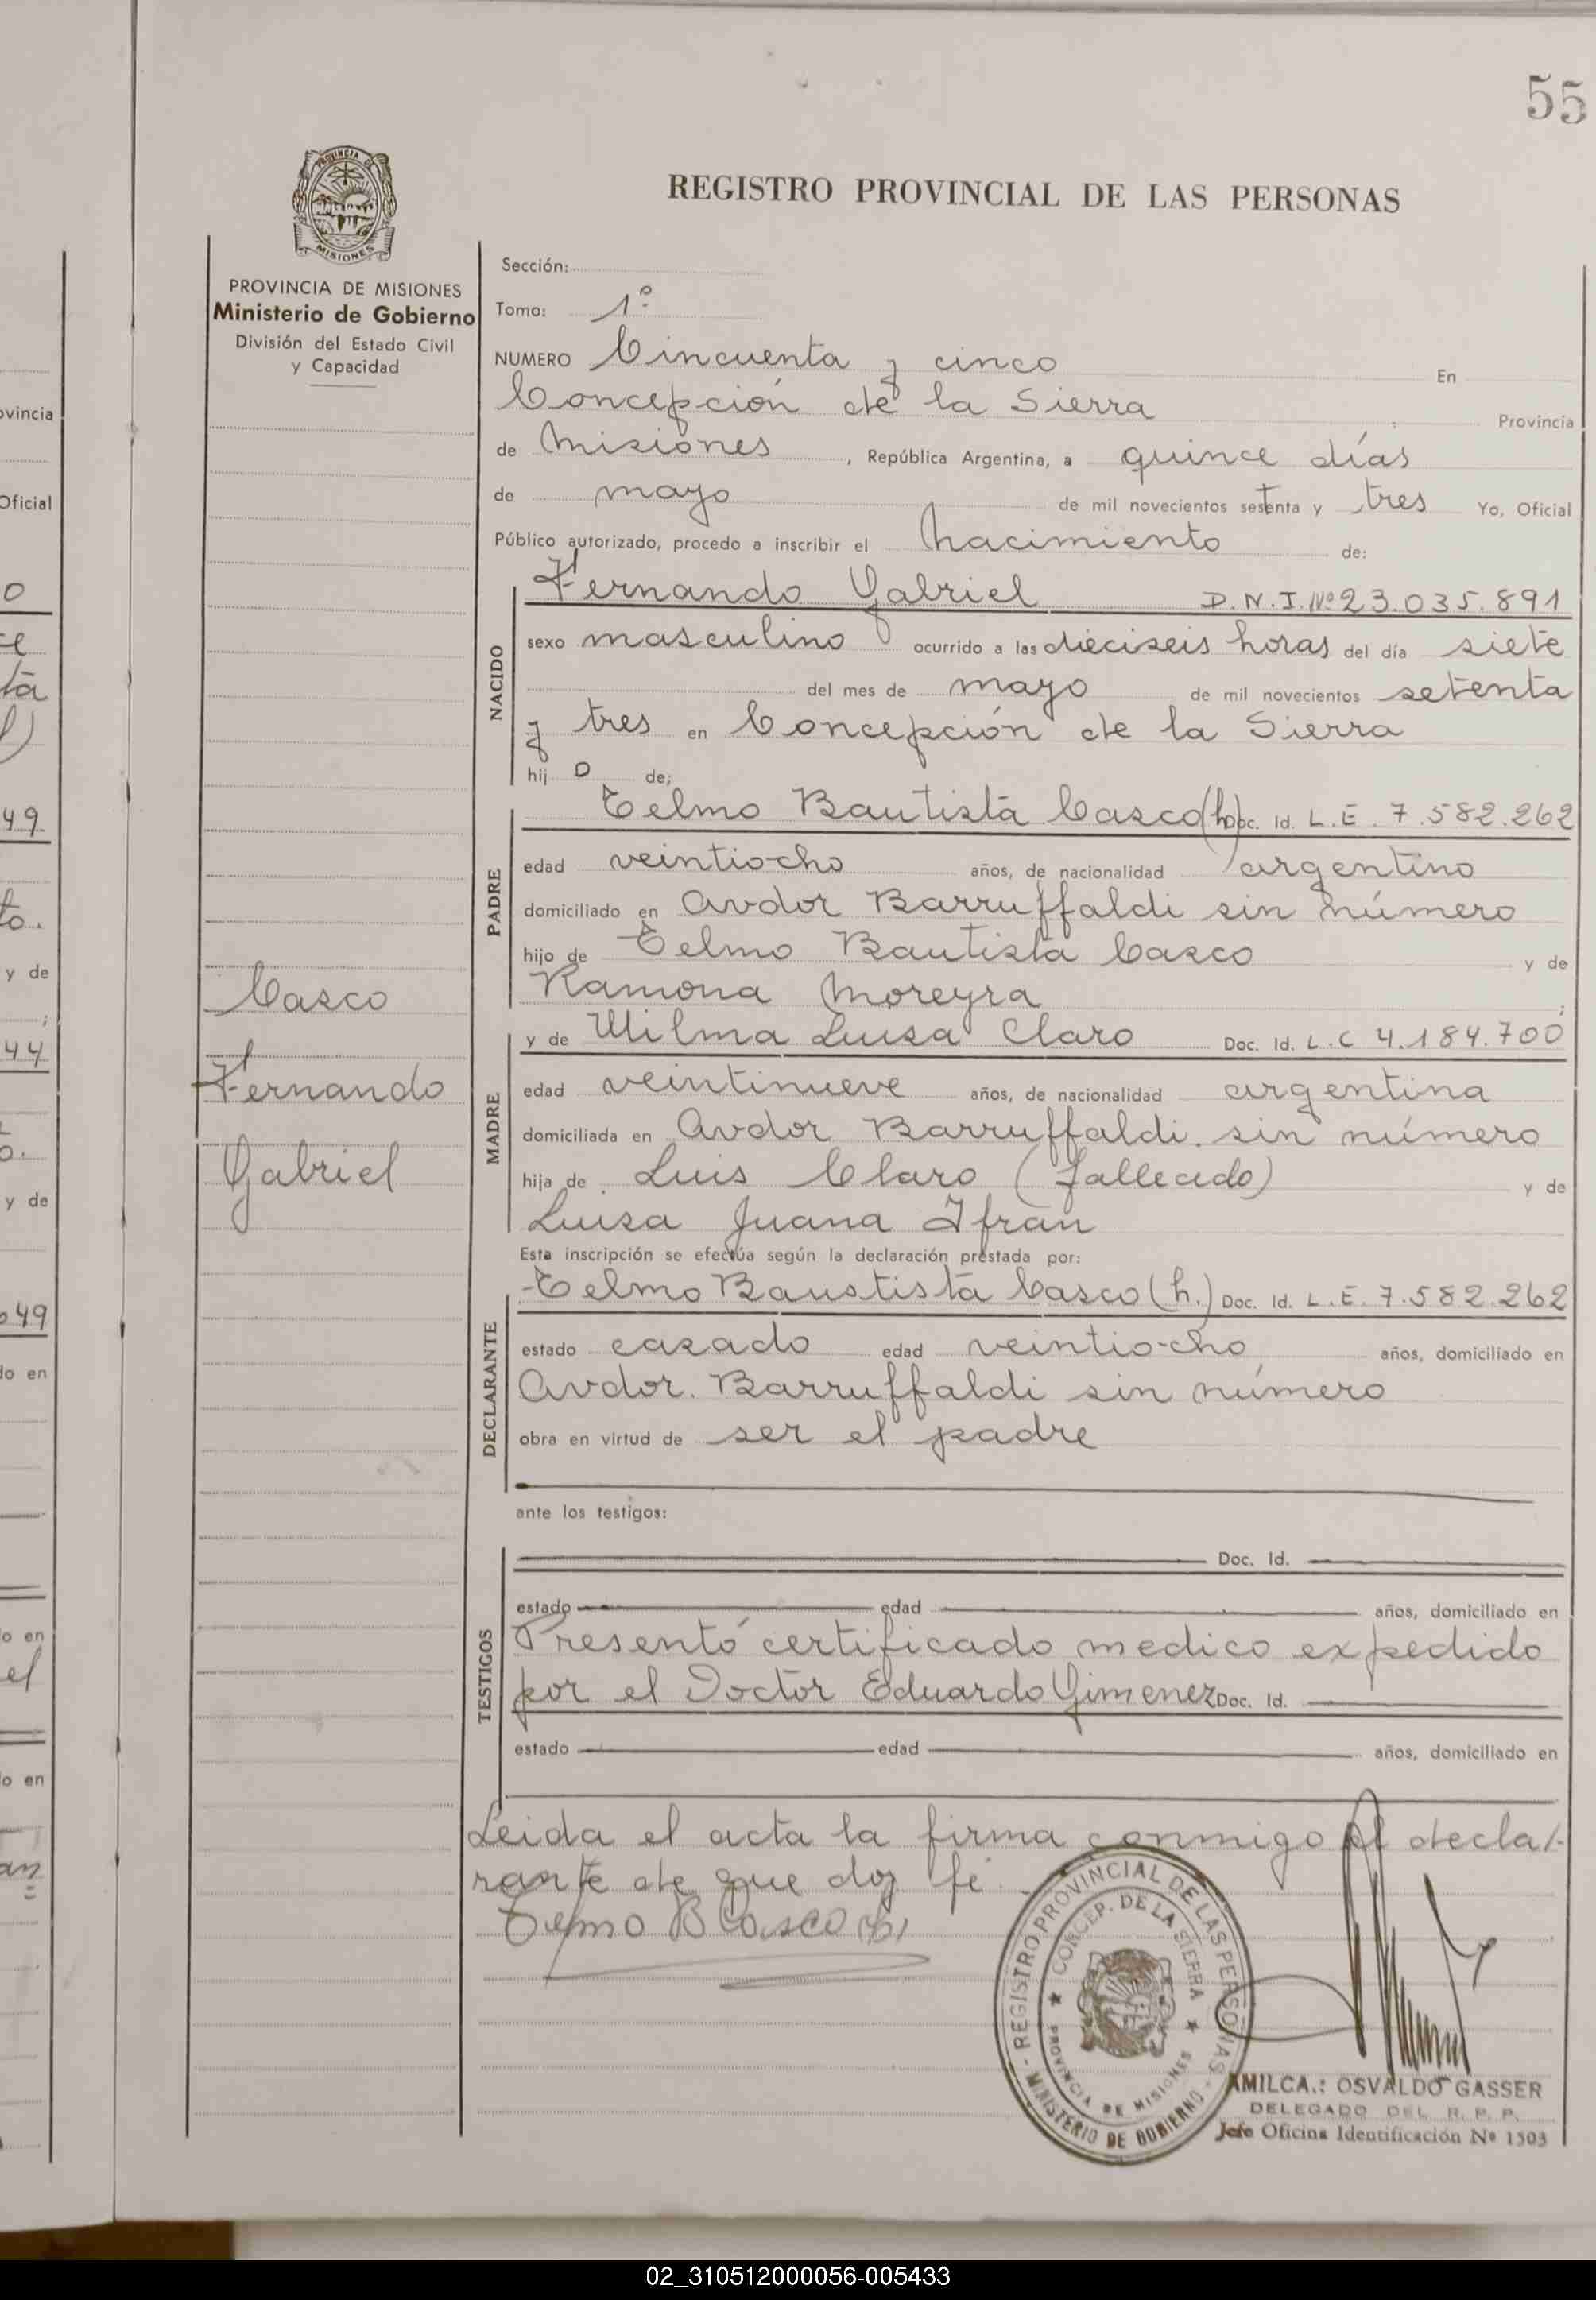 55
PROVINCIA DE
MISIONES
REGISTRO PROVINCIAL DE LAS PERSONAS
PROVINCIA DE MISIONES
Ministerio de Gobierno
División del Estado Civil
y Capacidad
Sección:
Tomo: 1º
NUMERO Cincuenta y cinco En
Concepción de la Sierra Provincia
de Misiones, República Argentina, a quince días
de mayo de mil novecientos setenta y tres Yo, Oficial
Público autorizado, procedo a inscribir el nacimiento de:
NACIDO
Fernando Gabriel D.N.I. Nº 23.035.891
sexo masculino ocurrido a las dieciseis horas del día siete
del mes de mayo de mil novecientos setenta
y tres en Concepción de la Sierra
hijo de;
PADRE
Telmo Bautista Casco (h) Doc. Id. L.E. 7.582.262
edad veintiocho años, de nacionalidad argentino
domiciliado en Avdor Barruffaldi sin número
hijo de Telmo Bautista Casco y de
Ramona Moreyra ;
MADRE
y de Wilma Luisa Claro Doc. Id. L.C 4.184.700
edad veintinueve años, de nacionalidad argentina
domiciliada en Avdor Barruffaldi sin número
hija de Luis Claro (fallecido) y de
Luisa Juana Ifran
Esta inscripción se efectúa según la declaración prestada por:
DECLARANTE
Telmo Baustista Casco (h.) Doc. Id. L.E. 7.582.262
estado casado edad veintiocho años, domiciliado en
Avdor. Barruffaldi sin número
obra en virtud de ser el padre
ante los testigos:
TESTIGOS
Doc. Id.
estado edad años, domiciliado en
Presentó certificado medico expedido
por el Doctor Eduardo Gimenez Doc. Id.
estado edad años, domiciliado en
Leida el acta la firma conmigo el decla-
rante de que doy fé.
Telmo B Casco (h)
Casco
Fernando
Gabriel
REGISTRO PROVINCIAL DE LAS PERSONAS
MINISTERIO DE GOBIERNO
CONCEP. DE LA SIERRA
PROVINCIA DE MISIONES
AMILCA.: OSVALDO GASSER
DELEGADO DEL R. P. P.
Jefe Oficina Identificación Nº 1503
ovincia
Oficial
49
y de
44
y de
49
do en
o en
el
o en
02_310512000056-005433